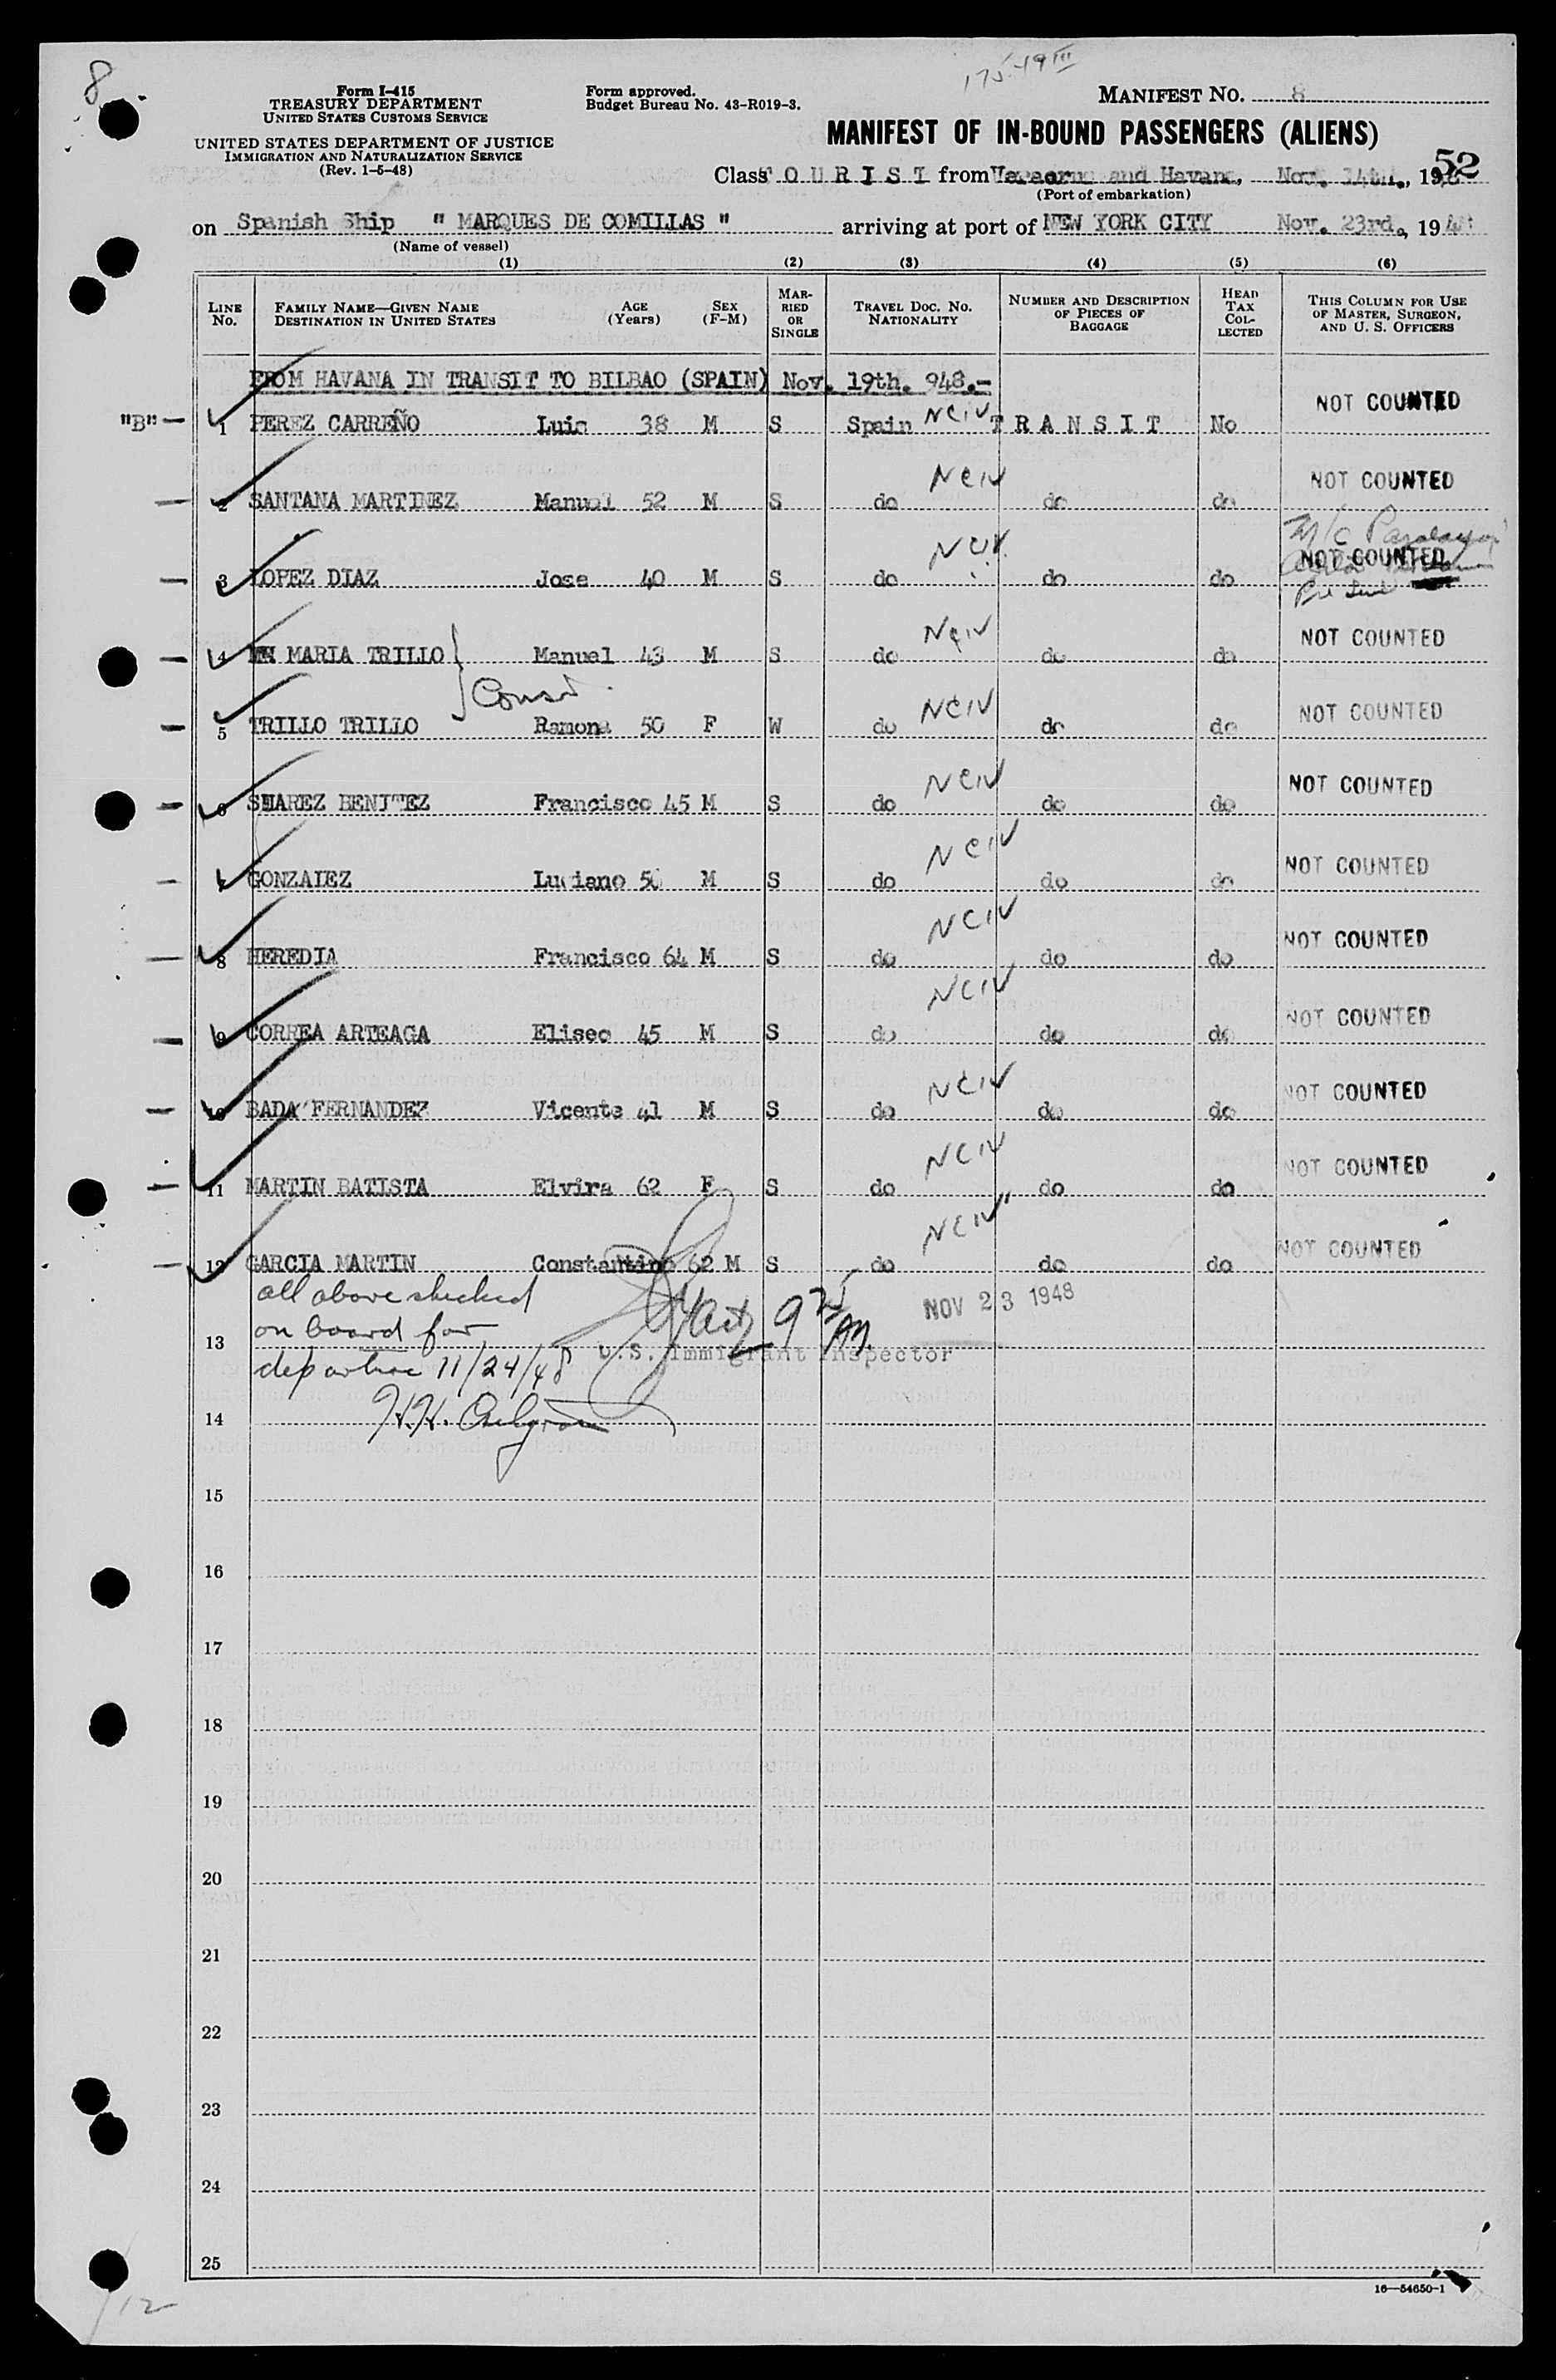 8
175-49 III
Form I-415
TREASURY DEPARTMENT
UNITED STATES CUSTOMS SERVICE
UNITED STATES DEPARTMENT OF JUSTICE
IMMIGRATION AND NATURALIZATION SERVICE
(Rev. 1-5-48)
Form approved.
Budget Bureau No. 43-R019-3.
MANIFEST NO. 8
MANIFEST OF IN-BOUND PASSENGERS (ALIENS)
52
Class TOURIST from Veracruz and Havana, Nov. 14th., 19
(Port of embarkation)
on Spanish Ship " MARQUES DE COMILLAS " arriving at port of NEW YORK CITY Nov. 23rd., 1948
(Name of vessel)
(1) (2) (3) (4) (5) (6)
LINE NO. FAMILY NAME—GIVEN NAME DESTINATION IN UNITED STATES AGE (Years) SEX (F-M) MARRIED OR SINGLE TRAVEL DOC. NO. NATIONALITY NUMBER AND DESCRIPTION OF PIECES OF BAGGAGE HEAD TAX COLLECTED THIS COLUMN FOR USE OF MASTER, SURGEON, AND U. S. OFFICERS
FROM HAVANA IN TRANSIT TO BILBAO (SPAIN) Nov. 19th. 948.-
"B"— 1 PEREZ CARREÑO Luis 38 M S Spain NCIV TRANSIT No NOT COUNTED
— 2 SANTANA MARTINEZ Manuel 52 M S do NCIV do do NOT COUNTED
— 3 LOPEZ DIAZ Jose 40 M S do do do NOT COUNTED
— 4 MARIA TRILLO Manuel 43 M S do NCIV do do NOT COUNTED
— 5 TRILLO TRILLO Ramona 50 F W do NCIV do do NOT COUNTED
— 6 SUAREZ BENITEZ Francisco 45 M S do NCIV do do NOT COUNTED
— 7 GONZALEZ Luciano 50 M S do NCIV do do NOT COUNTED
— 8 HEREDIA Francisco 64 M S do NCIV do do NOT COUNTED
— 9 CORREA ARTEAGA Eliseo 45 M S do NCIV do do NOT COUNTED
— 10 BADA FERNANDEZ Vicente 41 M S do NCIV do do NOT COUNTED
— 11 MARTIN BATISTA Elvira 62 F S do NCIV do do NOT COUNTED
— 12 GARCIA MARTIN Constantino 62 M S do NCIV do do NOT COUNTED
all above checked
on board for
departure 11/24/48
H.H.
9 25 AM.
NOV 23 1948
U.S. Immigrant Inspector
13
14
15
16
17
18
19
20
21
22
23
24
25
16—54650-1
12